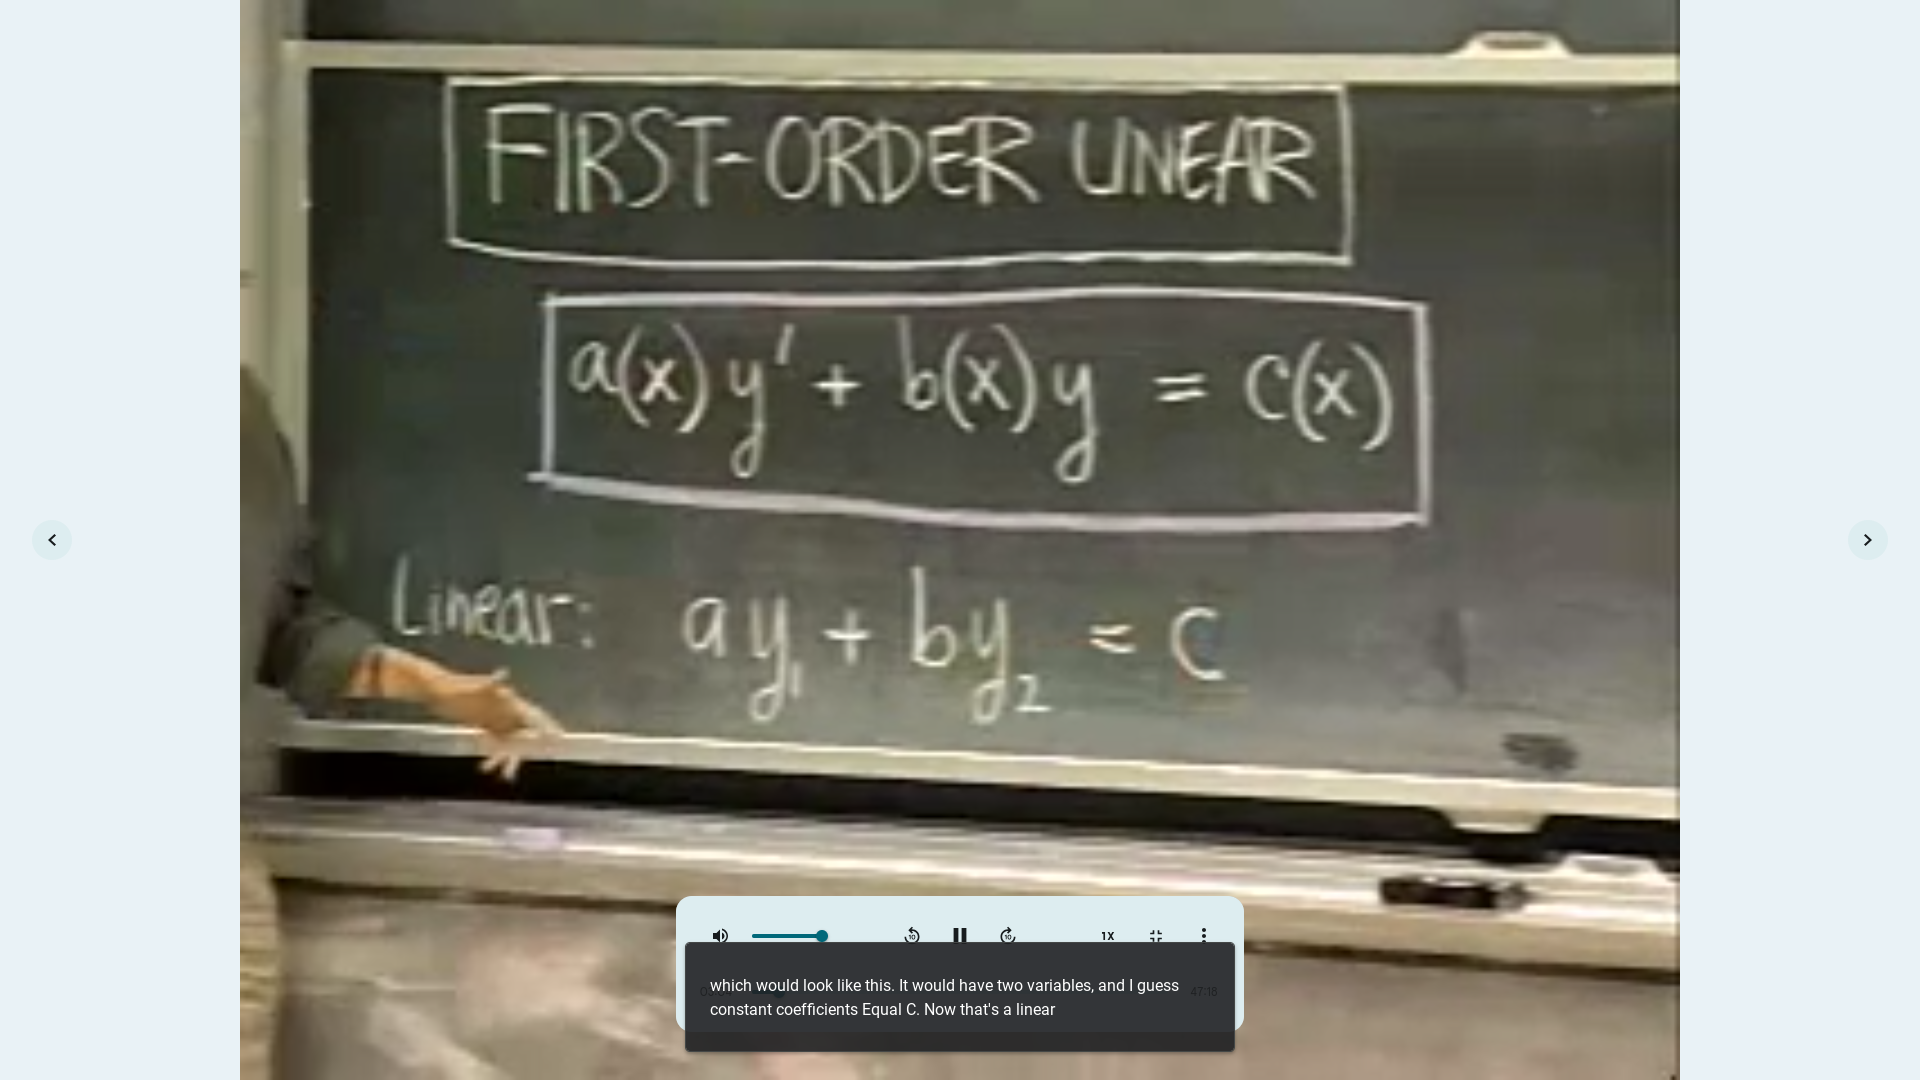 FIRST-ORDER LINEAR
a(x) y' + b(x) y = c(x)
Linear: ay₁ + by₂ = c
10
10
1X
47:18
which would look like this. It would have two variables, and I guess
constant coefficients Equal C. Now that's a linear